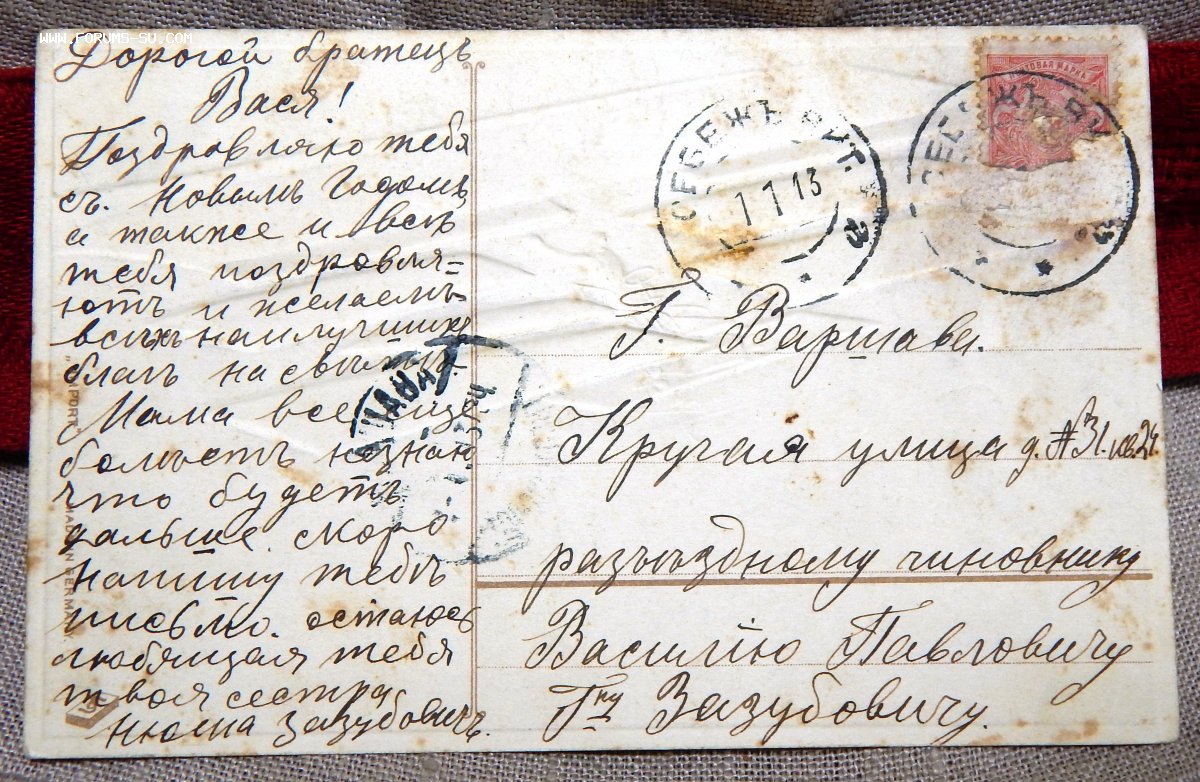 www.forums-su.com
Дорогой братецъ
Вася!
Поздровляю тебя
съ. Новымъ Годомъ
а также и всѣ
тебя поздровля=
ютъ и желаемъ
всѣхъ наилучшихъ
благъ на свѣтѣ.
Мама все еще
болѣетъ незнаю
что будетъ
дальше. скоро
напишу тебѣ
письмо. остаюсь
любящая тебя
твоя сестра
Нюша Зазубовичъ.
СЕБЕЖЪ ВИТ.
1 1 13
СЕБЕЖЪ ВИТ.
МАРКА
Г. Варшава.
Кручая улица д. № 31. кв. 24.
разъѣздному чиновнику
Василію Павловичу
Гну Зазубовичу.
MADE IN GERMANY